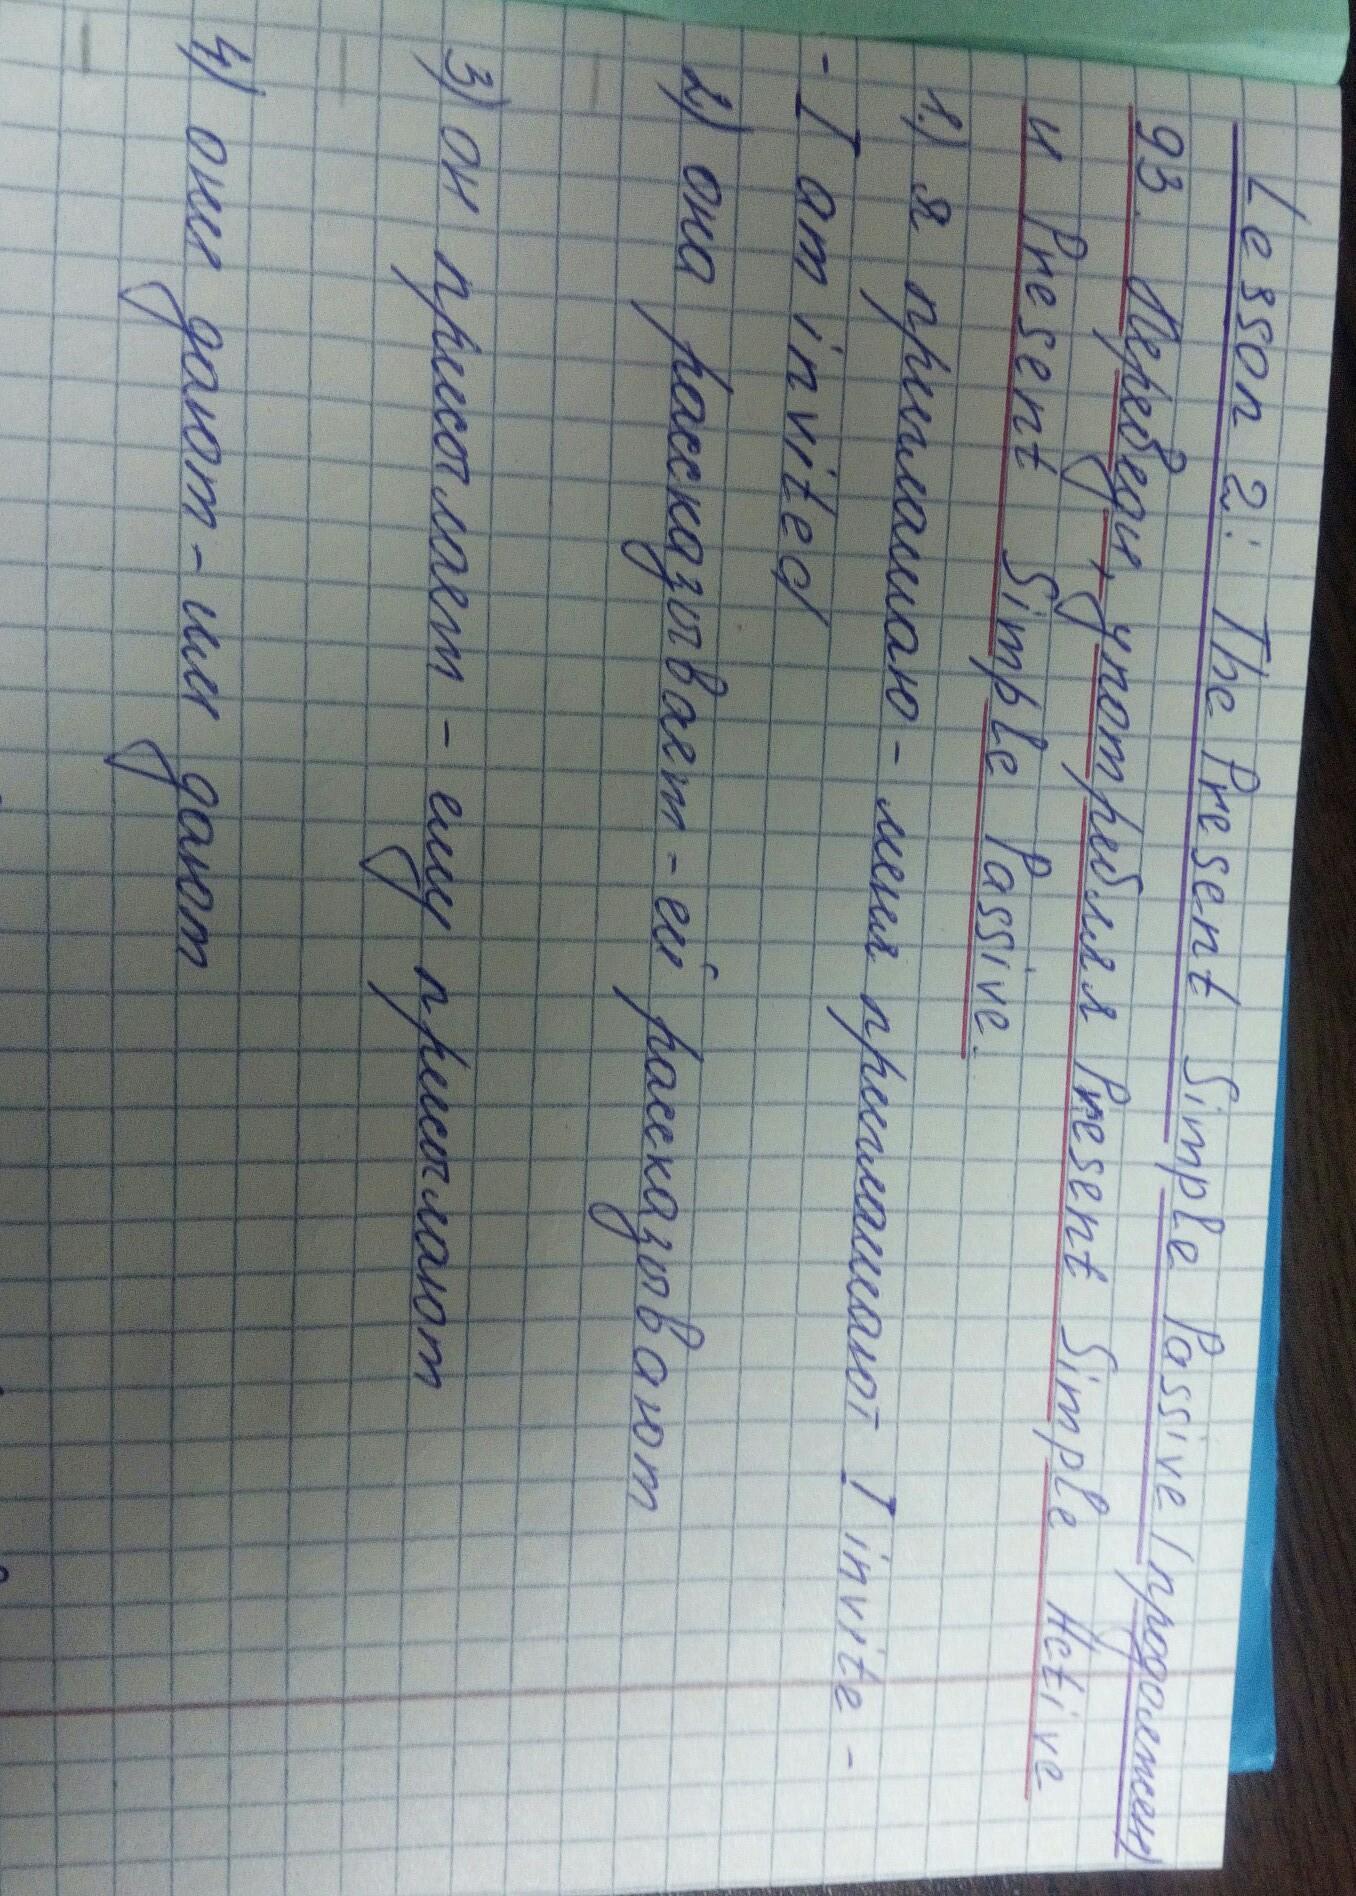 Lesson 2: The Present Simple Passive (продолжен)
93. Переведи, употребляя Present Simple Active
и Present Simple Passive.
1.) я приглашаю - меня приглашают I invite -
- I am invited
2) она рассказывает - ей рассказывают
3) он присылает - ему присылают
4) они дают - им дают